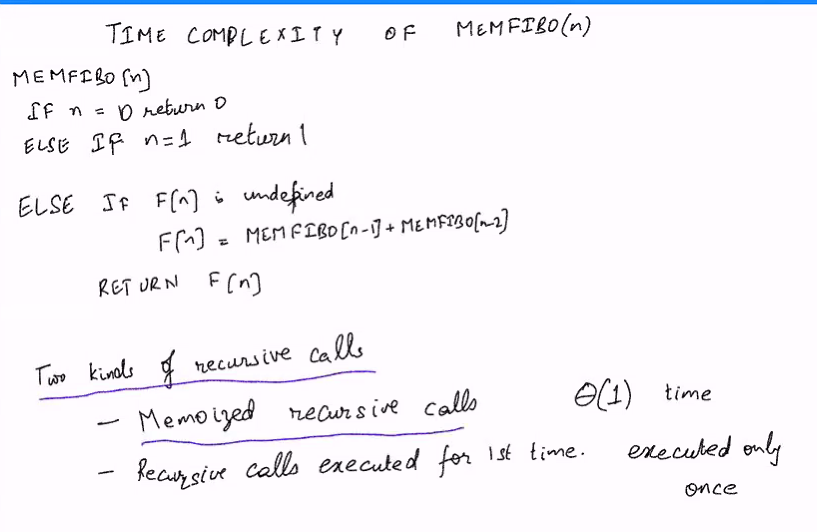 TIME COMPLEXITY OF MEMFIBO(n)
MEMFIBO[n]
IF n = 0 return 0
ELSE IF n=1 return 1
ELSE IF F[n] is undefined
F[n] = MEMFIBO[n-1] + MEMFIBO[n-2]
RETURN F[n]
Two kinds of recursive calls
- Memoized recursive calls Θ(1) time
- Recursive calls executed for 1st time. executed only
once